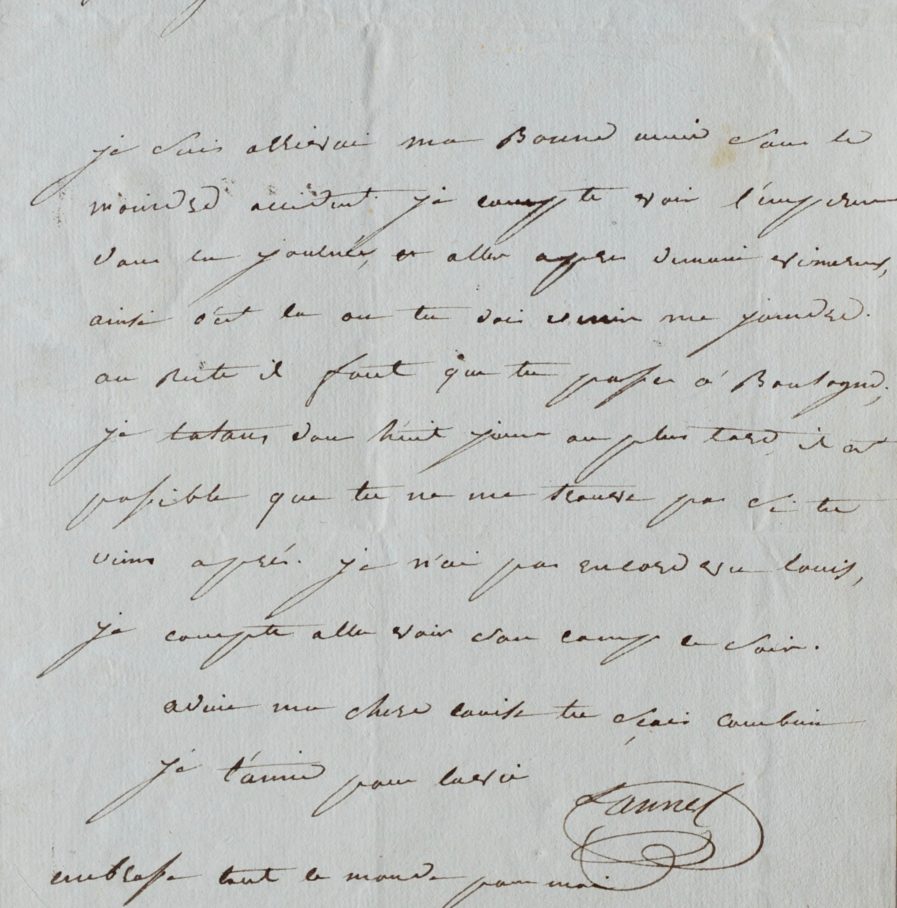 je suis arrivai ma Bonne amie sans le
moindre accident. je compte voir l'empereur
dans la journée, et aller apres demain a vimereux,
ainsi c'est la ou tu dois venir me joindre.
au reste il faut que tu passe a Boulogne,
je dan huit jour au plus tard, il est
possible que tu ne me trouve pas si tu
viens aprés. je n'ai pas encore vu louis,
je compte aller voir son camp ce soir.
adieu ma chere louise tu sçais combien
je t'aime pour la vie
Lannes
embrasse tout le monde pour moi